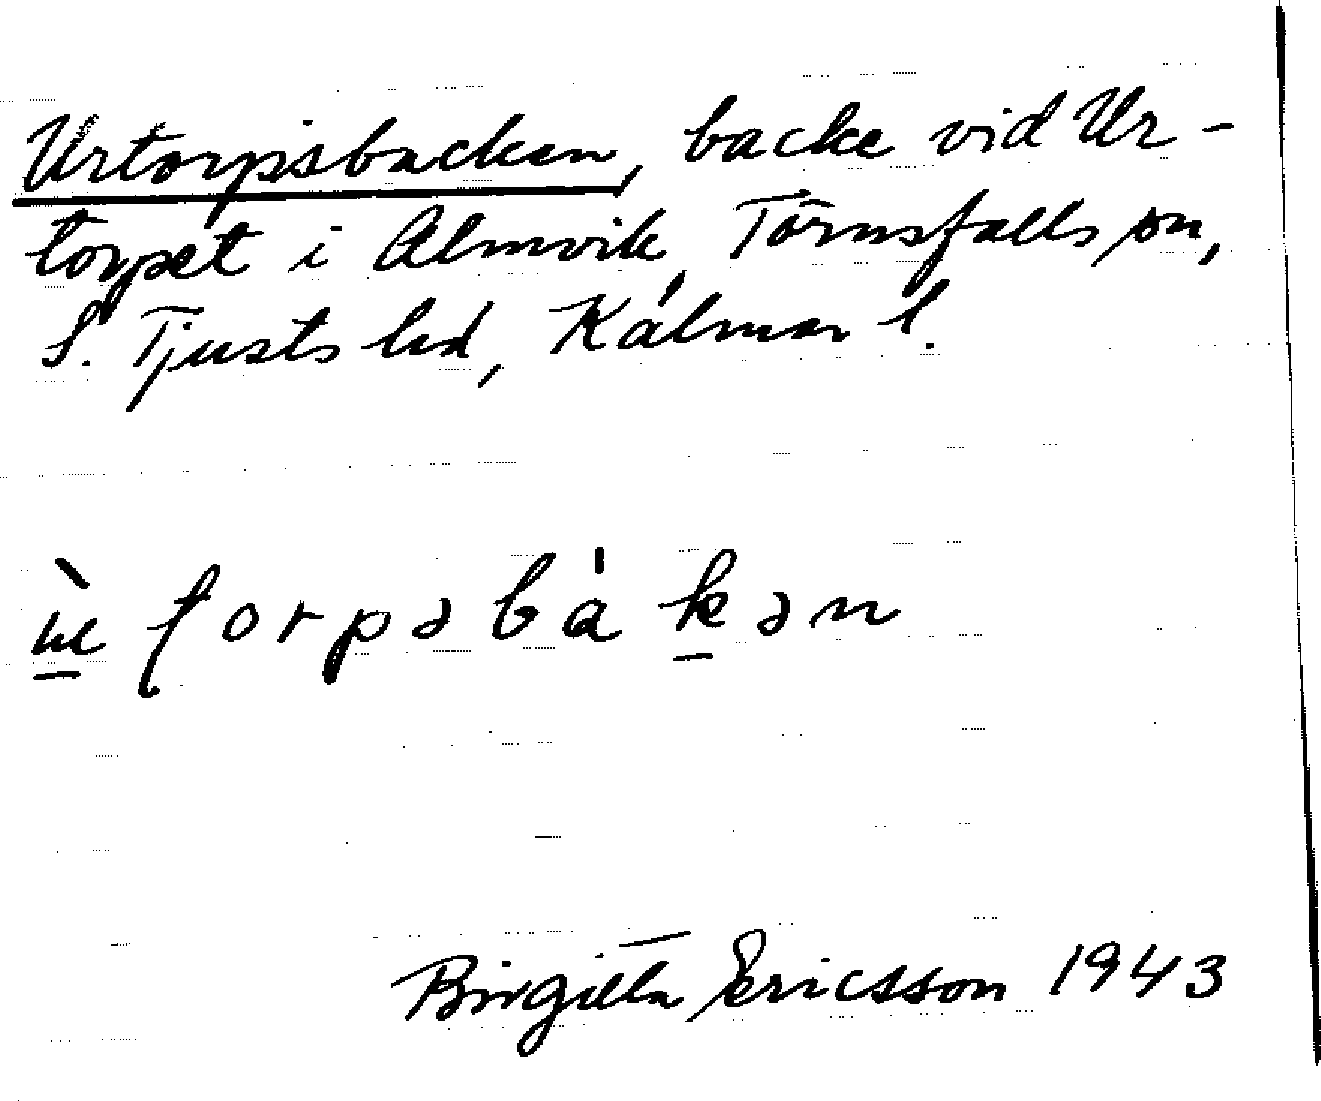 Urtorpsbacken, backe vid Ur-
torpet i Almvik, Törnsfalls sn,
S. Tjusts hd, Kalmar l.
ɯ̲̀ ʈorpsbáḵən
Birgitta Ericsson 1943